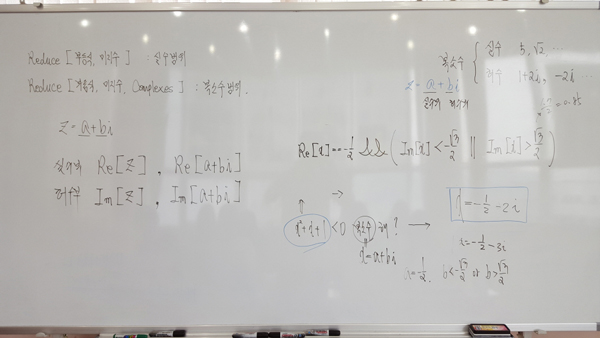 Reduce [부등식, 미지수] : 실수범위
Reduce [부등식, 미지수, Complexes] : 복소수범위.
z = a + bi
실수부 Re[z] , Re[a+bi]
허수부 Im[z] , Im[a+bi]
복소수 { 실수 5, √2, ...
허수 1+2i, -2i ...
z = a + bi
실수부 허수부
√3/2 ≒ 0.85
Re[x] == -1/2 && ( Im[x] < -√3/2 || Im[x] > √3/2 )
↑ →
x²+x+1 < 0 복소수 해? → x = -1/2 - 2i
x = a + bi
x = -1/2 - 3i
a = -1/2, b < -√3/2 or b > √3/2